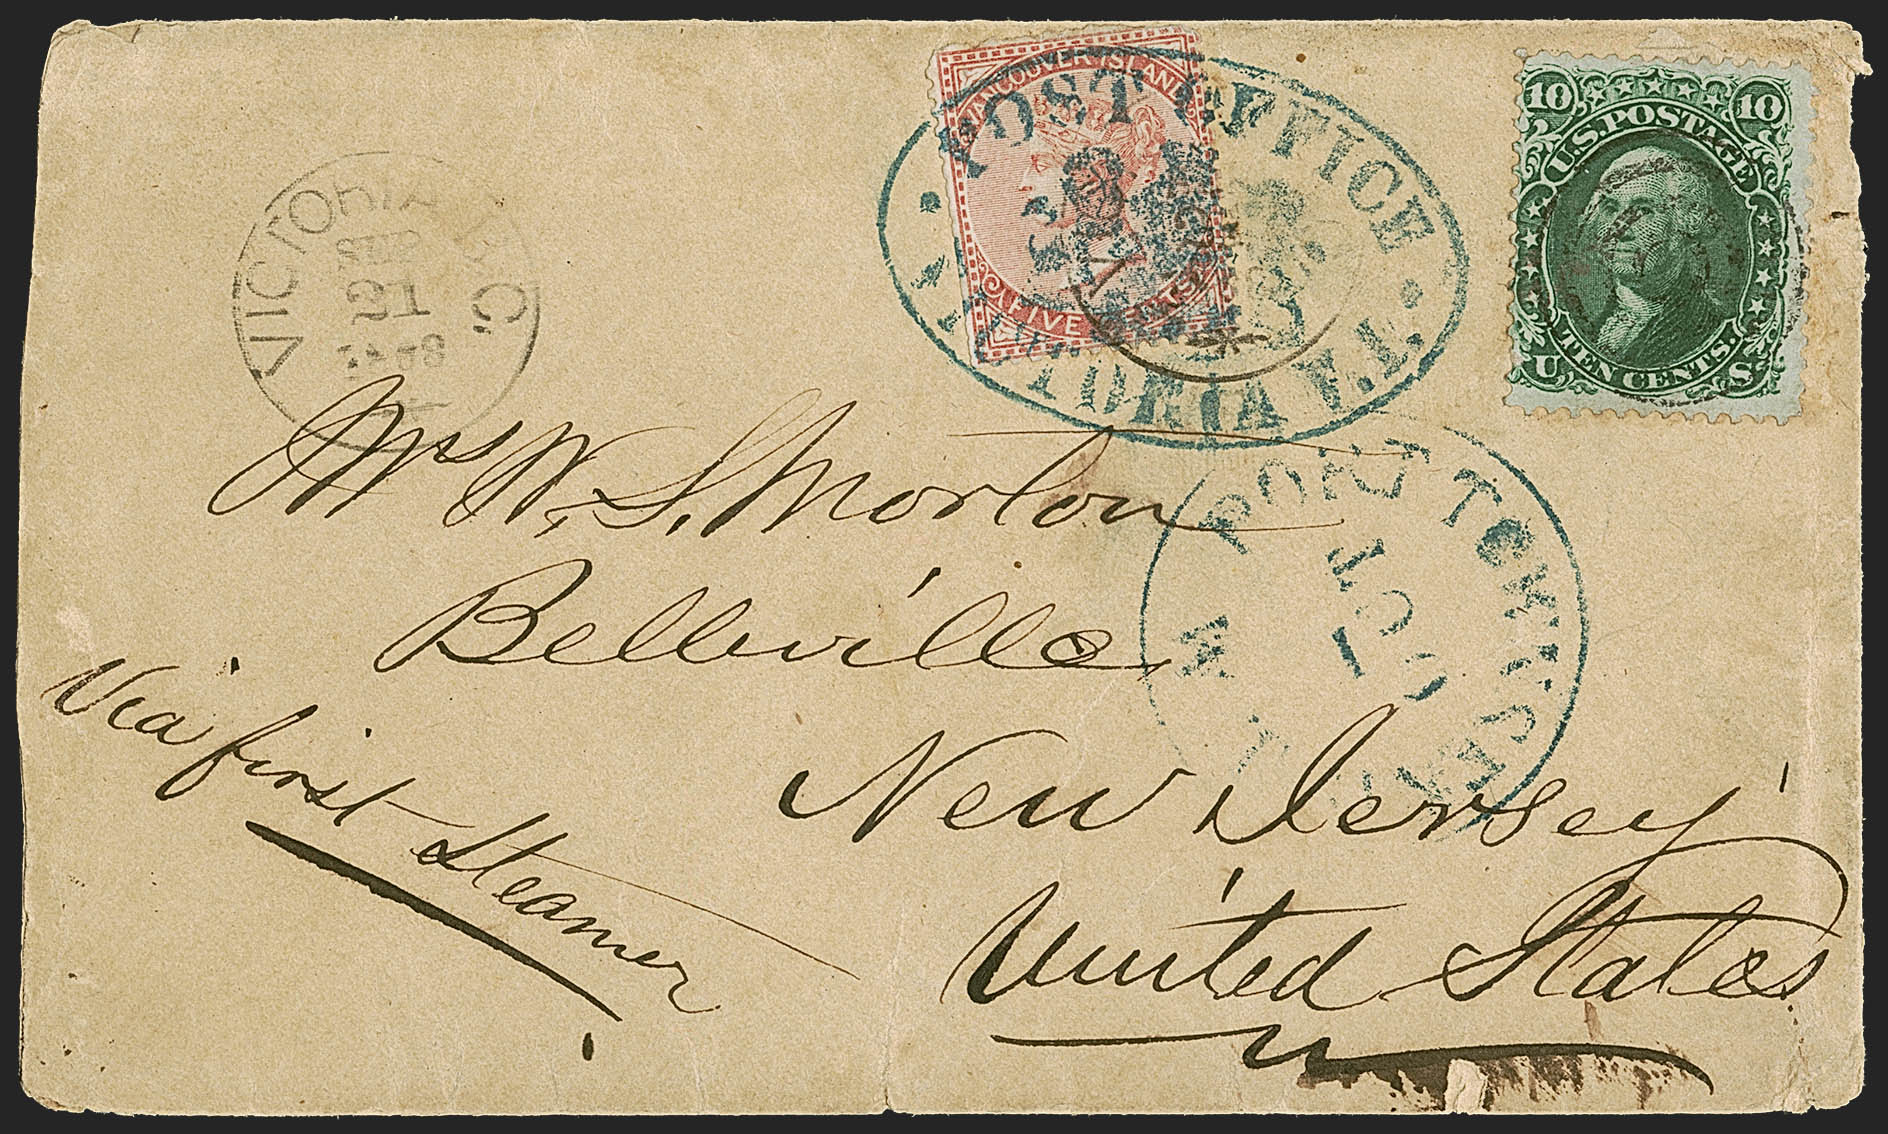 VANCOUVER ISLAND
FIVE CENTS
POST OFFICE
VICTORIA V.I.
10 10
U.S. POSTAGE
TEN CENTS.
U. S.
VICTORIA
SEP
21
Mrs W. S. Morton
Belleville
New Jersey
United States
Via first Steamer
PORT TOWNSEND
OCT
W. T.